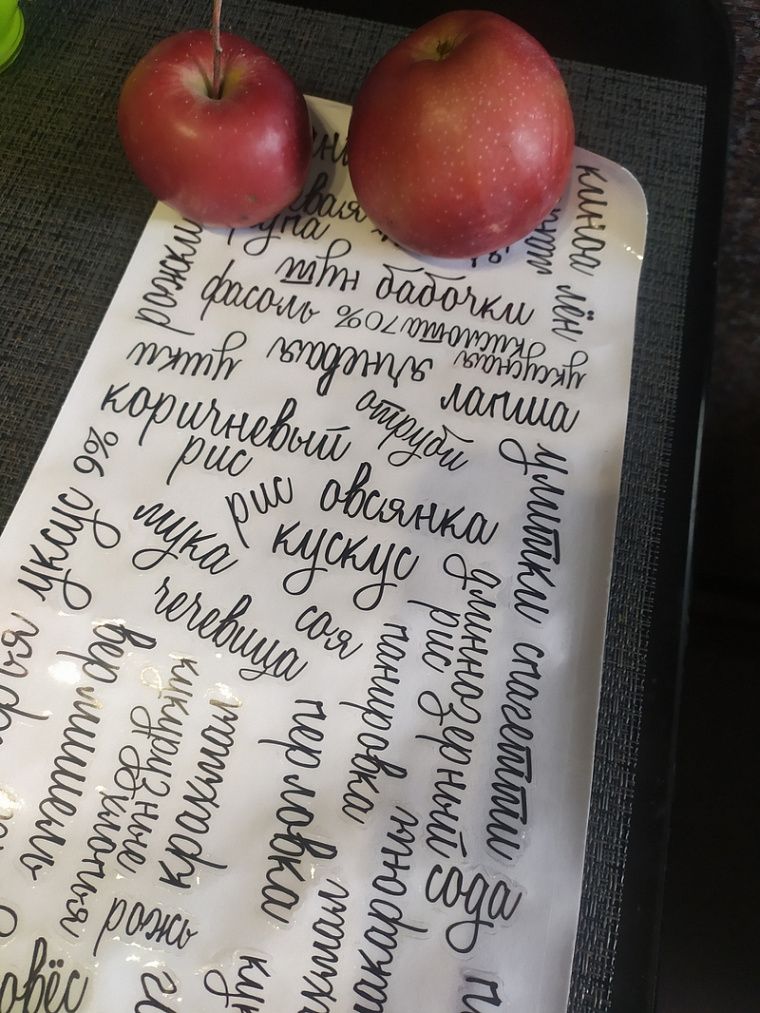 киноа
лён
рожки
крупа
нут
бабочки
фасоль
уксусная
кислота 70%
ушки
ячневая
лапша
отруби
коричневый
рис
рис
овсянка
улитки
уксус 9%
мука
кускус
чечевица
соя
длиннозерный
рис
спагетти
вермишель
кукурузные
хлопья
крахмал
перловка
панировка
сода
рожь
макароны
крахмал
овёс